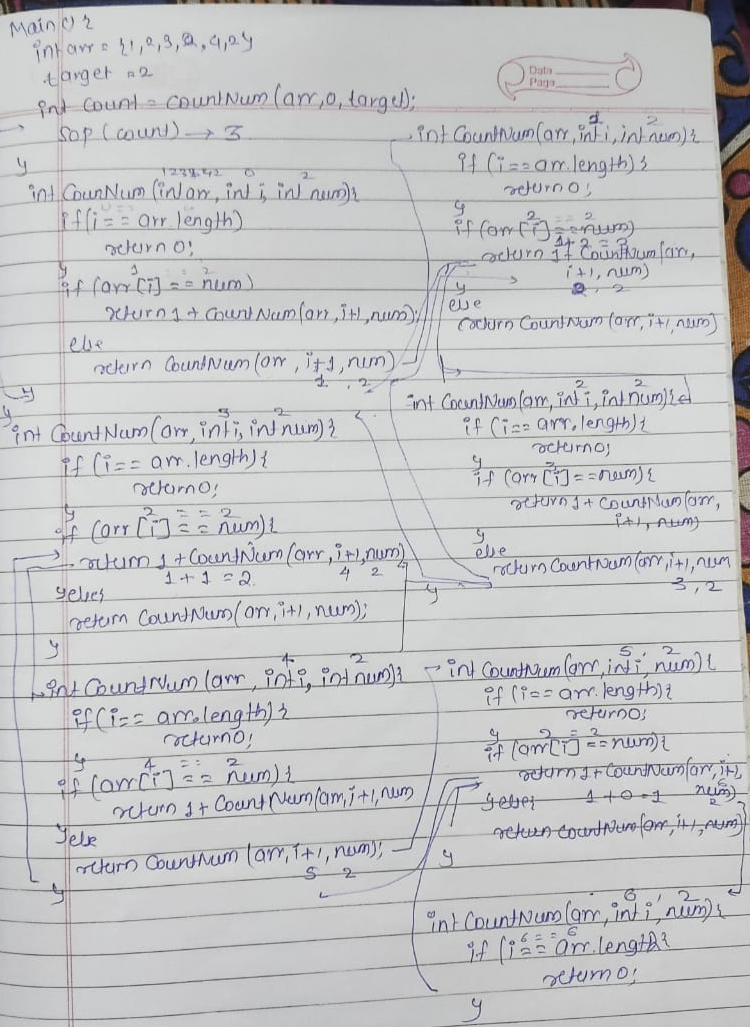 Main() {
int arr = {1,2,3,2,4,2}
target = 2
Data
Page
int Count = CountNum(arr,0,target);
SOP (count) → 3
}
1 2 3 2 4 2 0 2
int CounNum (int arr, int i, int num){
if(i == arr.length)
return 0;
}
1 == 2
if (arr[i] == num)
return 1 + CountNum(arr, i+1, num);
else
return CountNum(arr, i+1, num)
1, 2
}
1 2
int CountNum(arr, int i, int num){
if (i == arr.length) {
return 0;
}
2 == 2
if (arr[i] == num)
1+2 = 3
return 1+ CountNum(arr,
i+1, num)
2, 2
}
else
return CountNum(arr, i+1, num)
2 2
int CountNum(arr, int i, int num){
if (i == arr.length){
return 0;
}
3
if (arr[i] == num){
return 1 + CountNum(arr,
i+1, num)
}
else
return CountNum(arr, i+1, num
3, 2
}
}
3 2
int CountNum(arr, int i, int num){
if (i == arr.length){
return 0;
}
2 == 2
if (arr[i] == num){
return 1 + CountNum(arr, i+1, num)
1 + 1 = 2 4 2
} else {
return CountNum(arr, i+1, num);
}
4 2
int CountNum (arr, int i, int num){
if(i == arr.length){
return 0;
}
4 == 2
if (arr[i] == num){
return 1 + CountNum(arr, i+1, num
} else
return CountNum (arr, i+1, num);
5 2
}
5 2
int CountNum(arr, int i, num){
if (i == arr.length){
return 0;
}
2 = 2
if (arr[i] == num){
return 1 + CountNum(arr, i+1,
6
} else { 1 + 0 = 1 num)
2
return CountNum(arr, i+1, num)
}
6 2
int CountNum(arr, int i, num){
6 == 6
if (i == arr.length){
return 0;
}